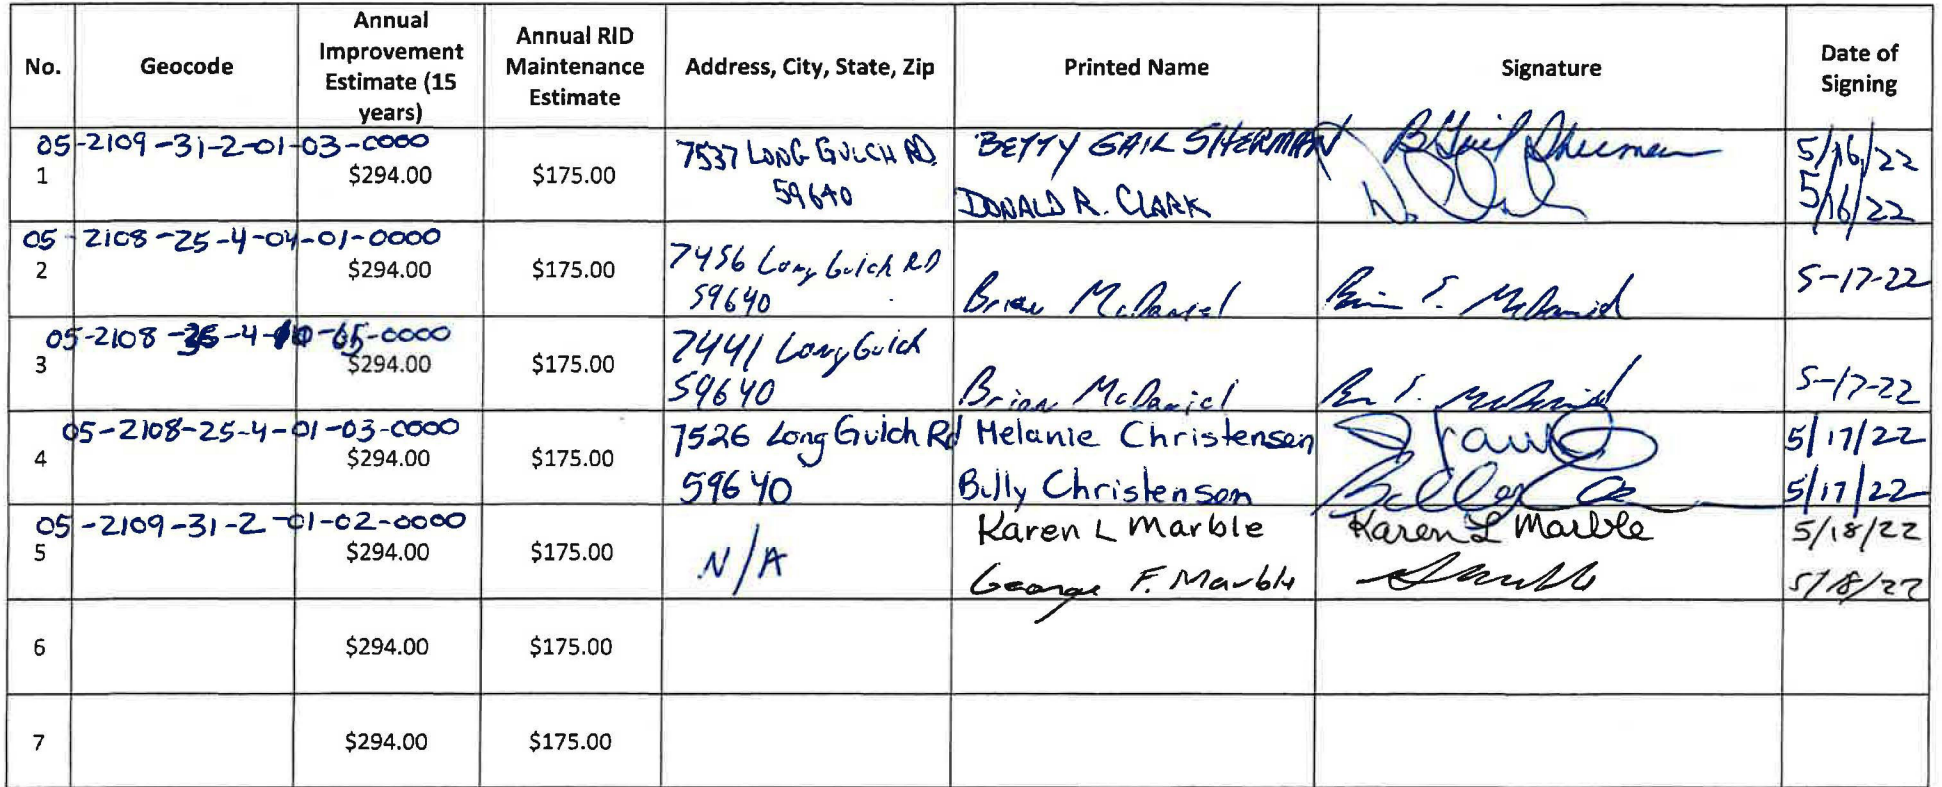 No.
Geocode
Annual
Improvement
Estimate (15
years)
Annual RID
Maintenance
Estimate
Address, City, State, Zip
Printed Name
Signature
Date of
Signing
05-2109-31-2-01-03-0000
1
$294.00
$175.00
7537 LONG GULCH RD
59640
BETTY GAIL SHERMAN
DONALD R. CLARK
B Gail Sherman
5/16/22
5/16/22
05-2108-25-4-04-01-0000
2
$294.00
$175.00
7456 Long Gulch RD
59640
Brian McDaniel
Brian E. McDaniel
5-17-22
05-2108
-0000
3
$294.00
$175.00
7441 Long Gulch
59640
Brian McDaniel
McDaniel
5-17-22
05-2108-25-4-01-03-0000
4
$294.00
$175.00
7526 Long Gulch Rd
59640
Melanie Christensen
Billy Christensen
5/17/22
5/17/22
05-2109-31-2-01-02-0000
5
$294.00
$175.00
N/A
Karen L Marble
George F. Marble
Karen L Marble
5/18/22
5/18/22
6
$294.00
$175.00
7
$294.00
$175.00